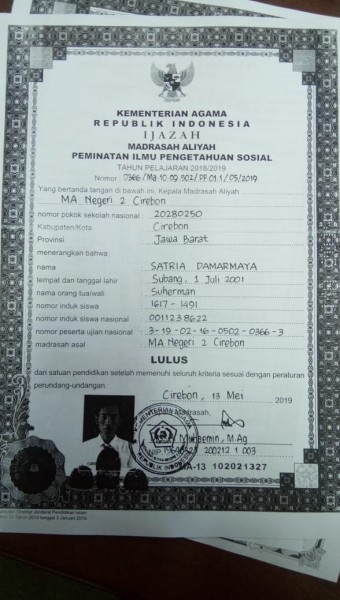 KEMENTERIAN AGAMA
REPUBLIK INDONESIA
IJAZAH
MADRASAH ALIYAH
PEMINATAN ILMU PENGETAHUAN SOSIAL
TAHUN PELAJARAN 2018/2019
Nomor: 0366/Ma.10.09.302/PP.01.1/05/2019
Yang bertanda tangan di bawah ini, Kepala Madrasah Aliyah
MA Negeri 2 Cirebon
nomor pokok sekolah nasional : 20280250
Kabupaten/Kota : Cirebon
Provinsi : Jawa Barat
menerangkan bahwa:
nama : SATRIA DAMARMAYA
tempat dan tanggal lahir : Subang, 1 Juli 2001
nama orang tua/wali : Suherman
nomor induk siswa : 1617 - 1491
nomor induk siswa nasional : 0011238622
nomor peserta ujian nasional : 3-19-02-16-0502-0366-3
madrasah asal : MA Negeri 2 Cirebon
LULUS
dari satuan pendidikan setelah memenuhi seluruh kriteria sesuai dengan peraturan
perundang-undangan.
Cirebon, 13 Mei 2019
Madrasah,
KEMENTERIAN AGAMA
REPUBLIK INDONESIA
M.Ag
NIP 200212 1 003
MA-13 102021327